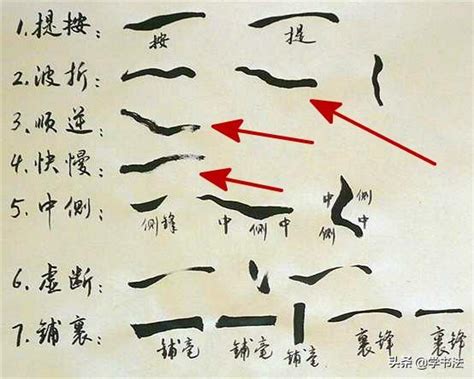 1.提按：
按
提
2.波折：
3.顺逆：
4.快慢：
5.中侧：
侧锋
中 侧 中
中 侧 中
6.虚断：
7.铺裹：
铺毫 铺毫 铺毫 裹锋 裹锋
头条@学书法